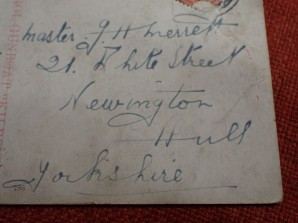 Master J H Merrett
21. White Street
Newington
Hull
Yorkshire